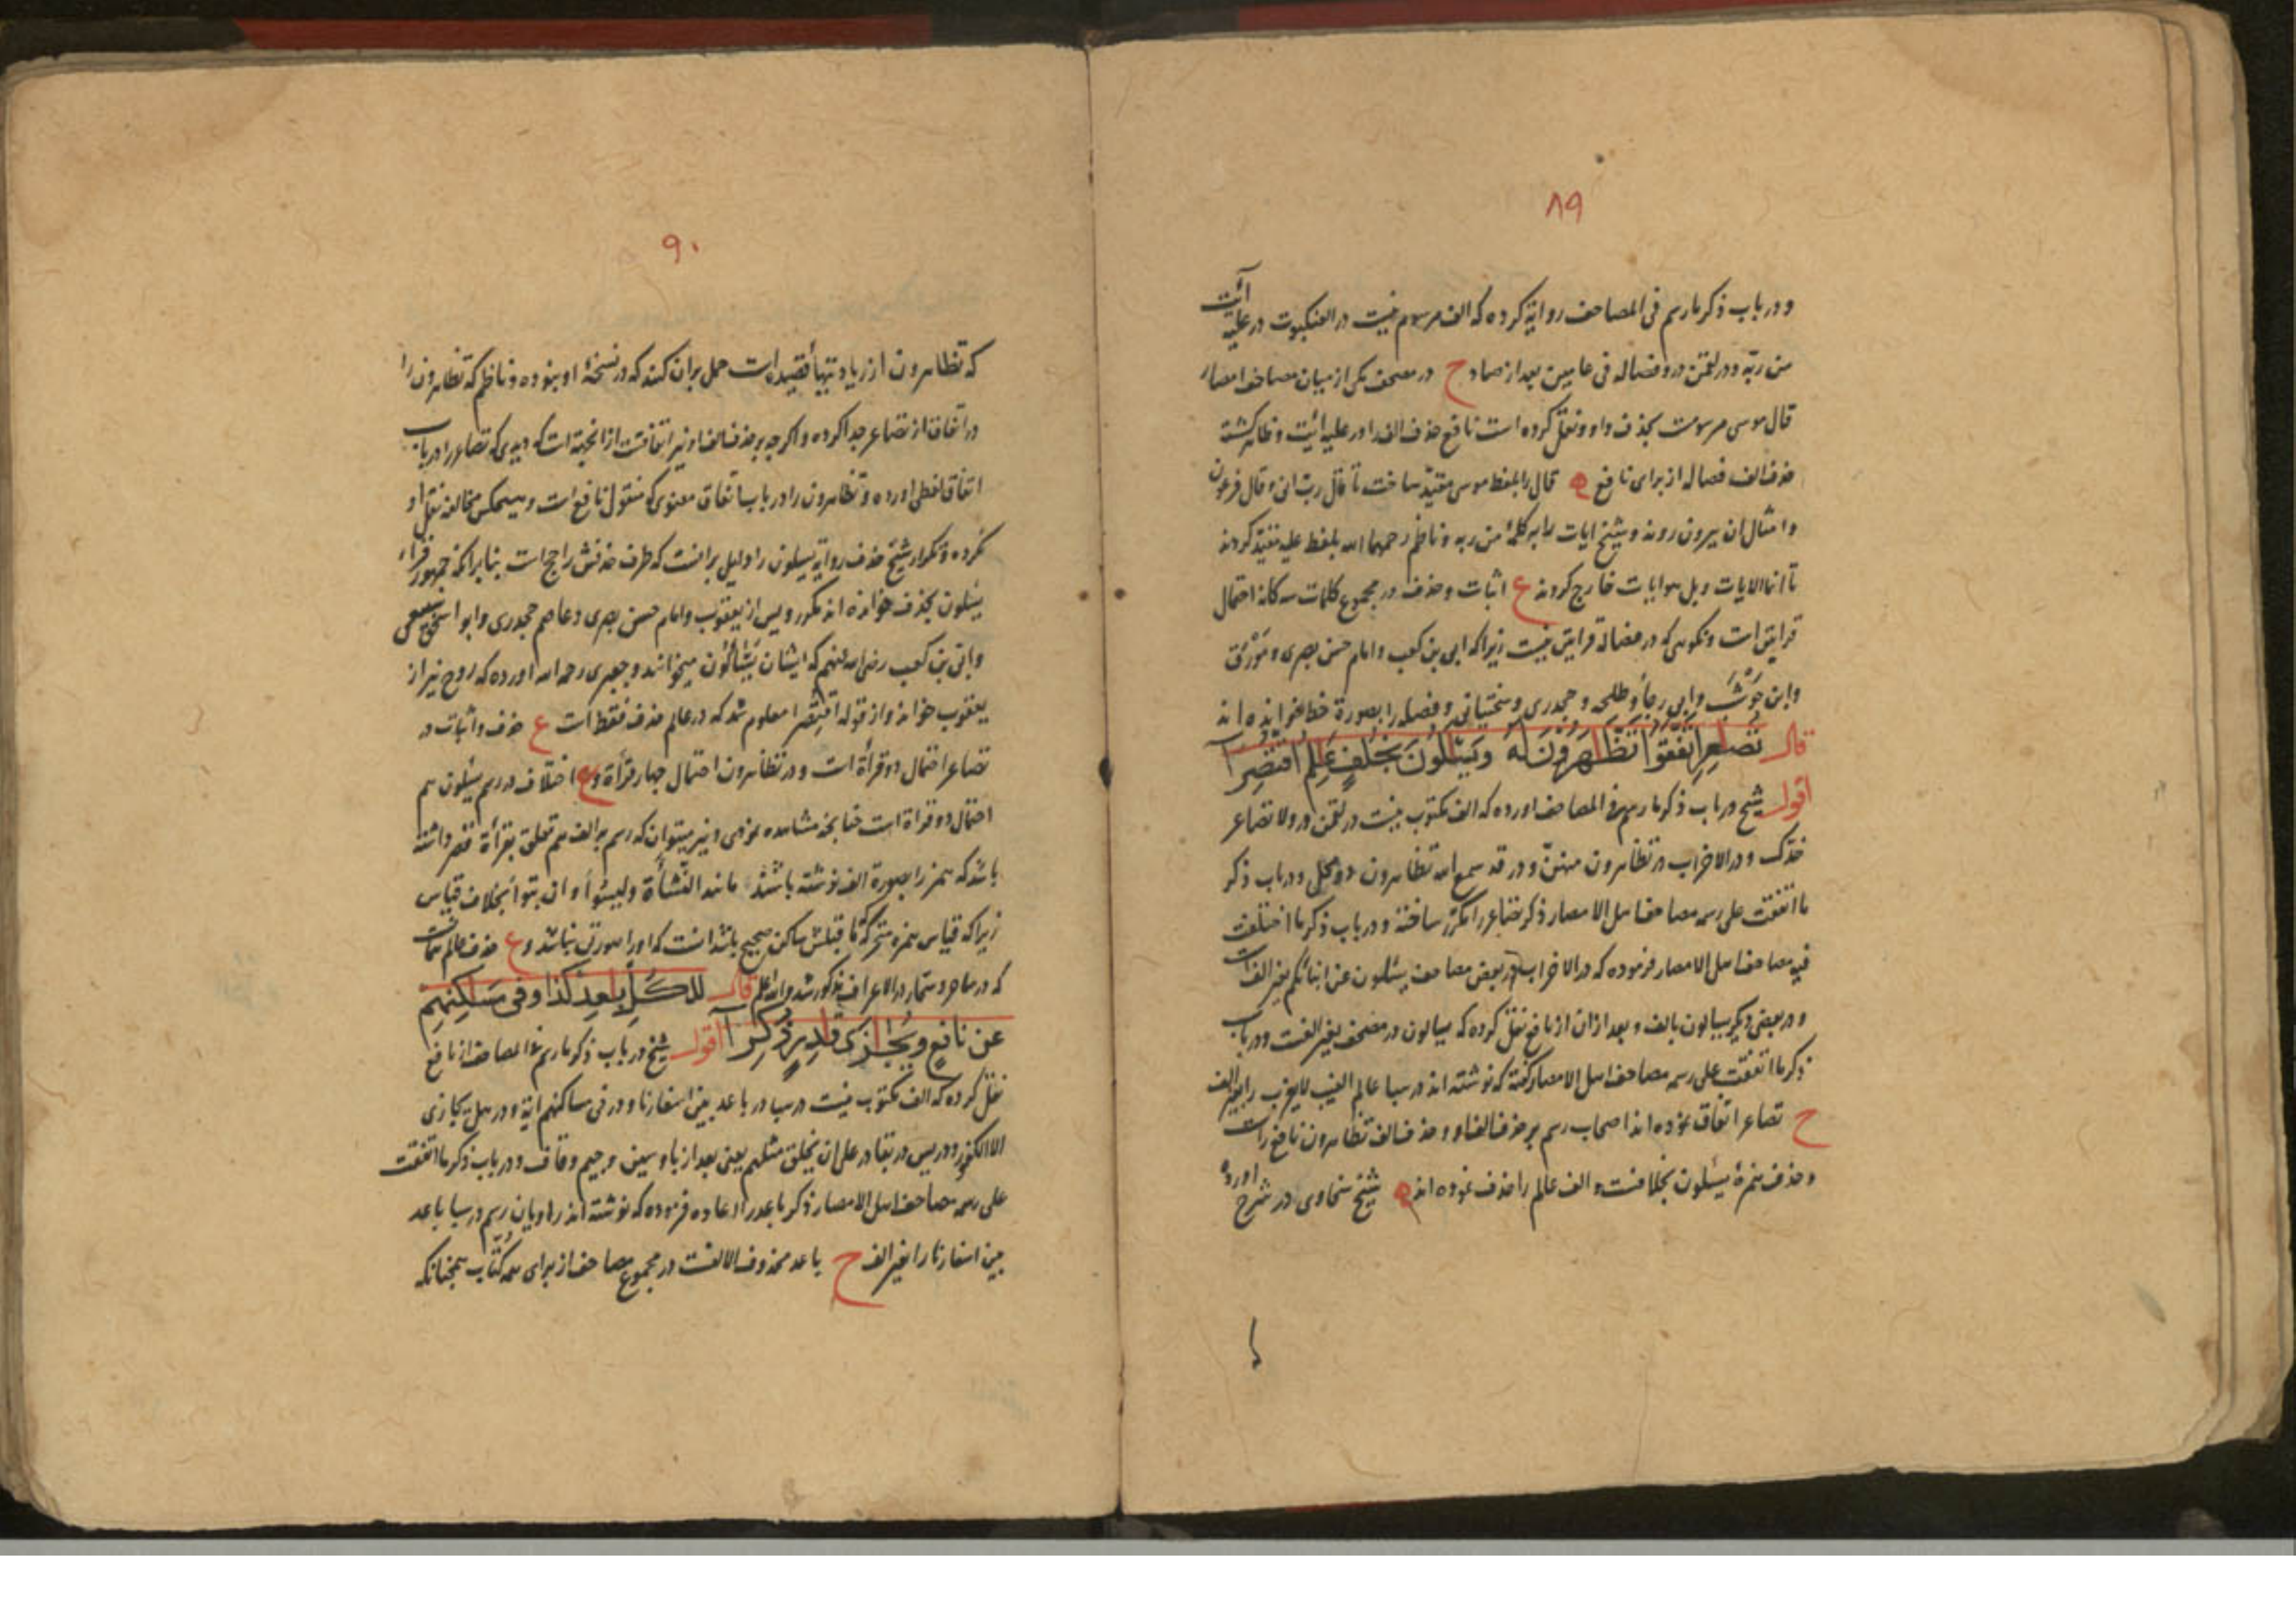 ٨٩
و در باب ذکر ما رسم فی المصاحف روایة کرده که الف مرسوم نیست در العنکبوت در علیه آیت
من ربه و در لقمن در و فصاله فی عامین بعد از صاد ح در مصحف مکی از میان مصاحف امصار
قال موسی مرسومست بحذف واو و نقل کرده است نافع حذف الف را در علیه آیت و ظاهر کشته
حذف الف فصاله از برای نافع ه قال را بلفظ موسی مقید ساخت تا قال رب انی و قال فرعون
و امثال ان بیرون روند و شیخ ایات را به کلمهٔ من ربه و ناظم رحمهما الله بلفظ علیه مقید کردند
تا انما الایات و بل هو ایات خارج کردند ع اثبات و حذف در مجموع کلمات سه کانه احتمال
قرایتی است و نکویی که در فصاله قرایتی نیست زیرا که ابی بن کعب و امام حسن بصری و مورق
و ابن حوشب و ابی رجاء و طلحه و جحدری و سختیانی و فصله را بصورة خط خوانده اند
قال تصعر اتفقوا تظهرون له ویسئلون بخلف علم اقتصرا
اقول شیخ در باب ذکر ما رسم فی المصاحف اورده که الف مکتوب نیست در لقمن در ولا تصاعر
خدک و در الاحزاب در تظاهرون منهن و در قد سمع الله تظاهرون دو محل و در باب ذکر
ما اتفقت علی رسمه مصاحف اهل الامصار ذکر تصاعر را مکرر ساخته و در باب ذکر ما اختلفت
فیه مصاحف اهل الامصار فرموده که در الاحزاب در بعض مصاحف یسئلون عن انبائکم بغیر الف است
و در بعضی دیکر یسالون بالف و بعد از ان از نافع نقل کرده که یسالون در مصحف بغیر الفست و در باب
ذکر ما اتفقت علی رسمه مصاحف اهل الامصار کفته که نوشته اند در سبا عالم الغیب لا یعزب را بغیر الف
ح تصاعر اتفاق نموده اند اصحاب رسم بر حذف الف او و حذف الف تظاهرون نافع راست
و حذف همزهٔ یسئلون بخلافست و الف عالم را حذف نموده اند ه شیخ سخاوی در شرح اورده
٩٠
که تظاهرون از زیادتیهاء قصید است حمل بران کنند که در نسخهٔ او نبوده و ناظم که تظاهرون را
در اتفاق از تصاعر جدا کرده و اکرچه بر حذف الف او نیز اتفاقست از انجهة است که دیدی که تصاعر را در باب
اتفاق لفظی اورده و تظاهرون را در باب اتفاق معنوی که منقول نافع است و هیچکس مخالفه نقل او
نکرده و تکرار شیخ حذف روایة یسئلون را دلیل برانست که طرف حذفش راجح است بنا برانکه جمهور قراء
یسئلون بحذف خوانده اند مکر رویس از یعقوب و امام حسن بصری و عاصم جحدری و ابو اسحق سبیعی
و ابی بن کعب رضی الله عنهم که ایشان یساءلون میخوانند و جعبری رحمه الله اورده که روح نیز از
یعقوب خواند و از قوله اقتصرا معلوم شد که در عالم حذف فقط است ع حذف و اثبات در
تصاعر احتمال دو قرأة است و در تظاهرون احتمال چهار قرأة و ع اختلاف در رسم یسئلون هم
احتمال دو قراة است چنانچه مشاهده نمودی و نیز میتوان که رسم بر الف هم متعلق بقرأة قصر داشته
باشد که همزه را بصورة الف نوشته باشند مانند النشأة و لیسوأ و ان تبوأ بخلاف قیاس
زیرا که قیاس همزه متحرکه که ما قبلش ساکن صحیح باشد انست که او را صورتی نباشد و ع حذف عالم همانست
که در ساحر و سحار در الاعراف مذکور شد والله اعلم قال للکل بعد کذا وفی مسکنهم
عن نافع ونجزی قدر ذکرا اقول شیخ در باب ذکر ما رسم فی المصاحف از نافع
نقل کرده که الف مکتوب نیست در سبا در باعد بین اسفارنا و در فی مساکنهم ایة و در هل یجازی
الا الکفور و در یس در بقادر علی ان یخلق مثلهم یعنی بعد از با و سین و جیم و قاف و در باب ذکر ما اتفقت
علی رسمه مصاحف اهل الامصار ذکر باعد را اعاده فرموده که نوشته اند راویان رسم در سبا باعد
بین اسفارنا را بغیر الف ح باعد محذوف الالفست در مجموع مصاحف از برای همه کتاب همچنانکه